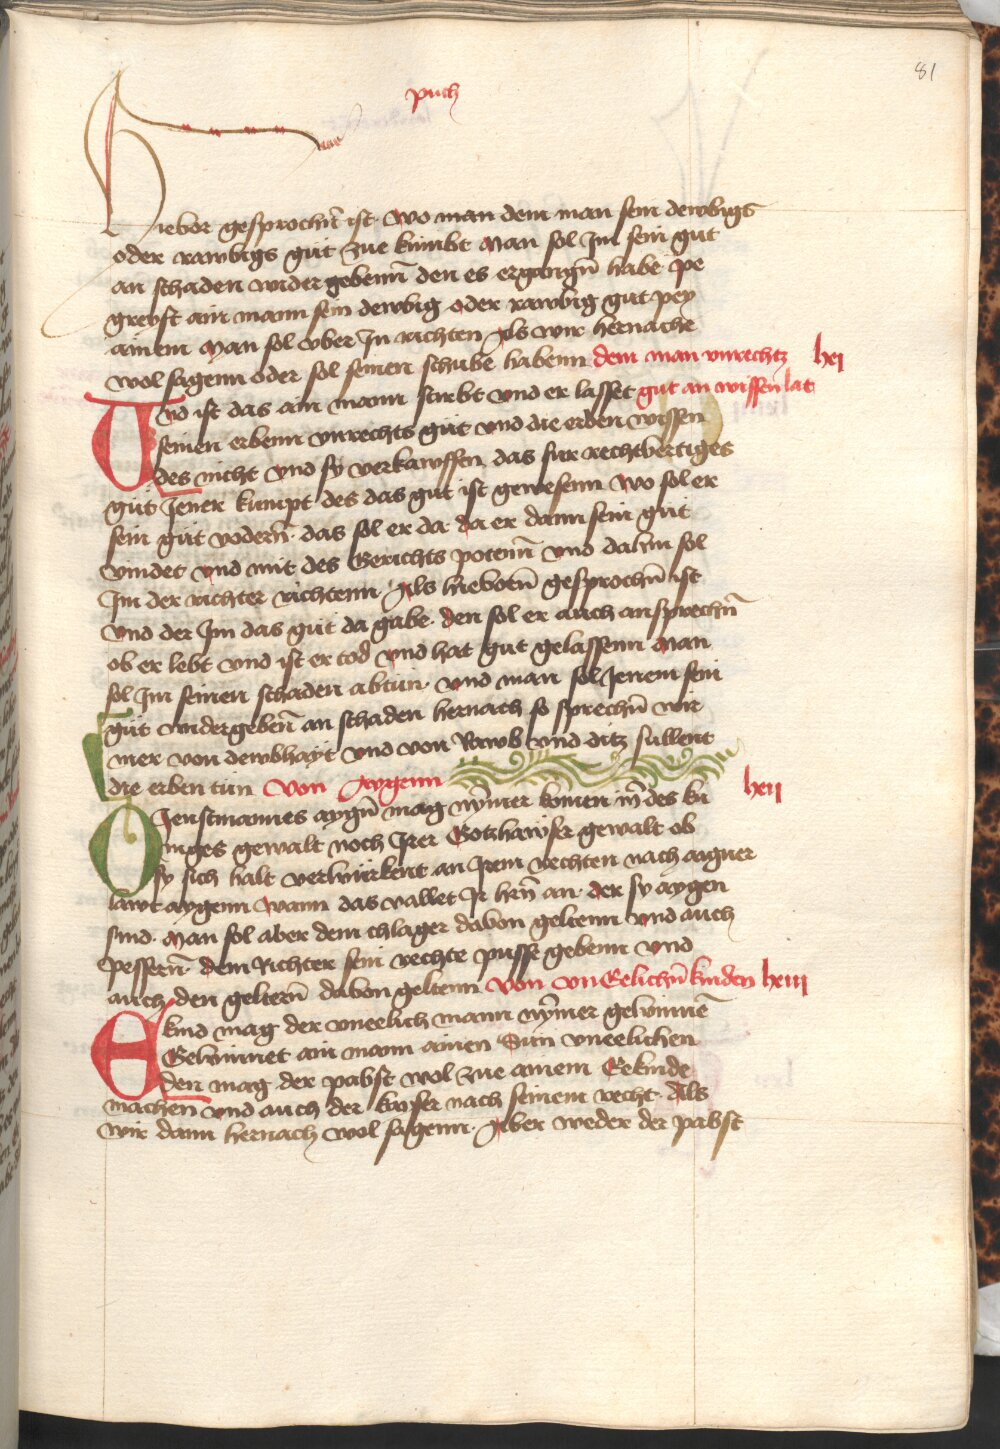 81
puch
Hiebor gesprochn̄ ist. Wo man dem man sein dewbigs
oder rawbigs gut zue kumbt Man sol Im sein gut
an schaden widergebenn̄ den es ergangn̄ habe
greyft ain mann sein dewbig oder rawbig gut pey
ainem Man sol vber In richten Als wir hernache
wol sagenn oder sol seinen schube habenn dem man vnrechtz lxi
Vnd ist das ain mann stirbt vnd er lasset gut an wissen lat
seinen erbenn vnrechts gut vnd die erben wissen
des nicht vnd sy verkawffen das fur rechtvertiges
gut Jener kumpt des das gut ist gewesenn Wo sol er
sein gut vodern̄. das sol er da da er dann sein gut
vindet vnd mit des Gerichts potenn̄ vnd dahin sol
Im der richter richtenn. Als hieborn̄ gesprochn̄ ist
vnd der Im das gut da gabe. den sol er auch ansprechn̄
ob er lebt vnd ist er tod vnd hat gut gelassenn Man
sol Im seinen schaden abtun. vnd man sol Jenem sein
gut widergebn̄ an schaden hernach so sprechn̄ wir
mer von dewbhayt vnd von Rawb vnd ditz sullent
die erben tun Von Aygenn lxii
Dienstmannes aygn̄ mag nȳmer komen in̄ des ku
niges gewalt noch Irer Gotzhawser gewalt ob
sy sich halt verwurkent an Irem rechten nach aigner
lawt aygenn Wann das vallet Ir hern̄ an. der sy aygen
sind. Man sol aber dem chlager davon geltenn vnd auch
pessern̄. dem Richter sein rechte pusse gebenn vnd
auch den geltern̄ davon geltenn Von vn Eelichn̄ kinden lxiii
Ekind mag der vneelich mann nȳmer gewinnē
Gewinnet ain mann ainen Sun vneelichen
den mag der pabst wol zue ainem Eekinde
machen vnd auch der kayser nach seinem recht. Als
wir dann hernach wol sagenn. Aber weder der pabst